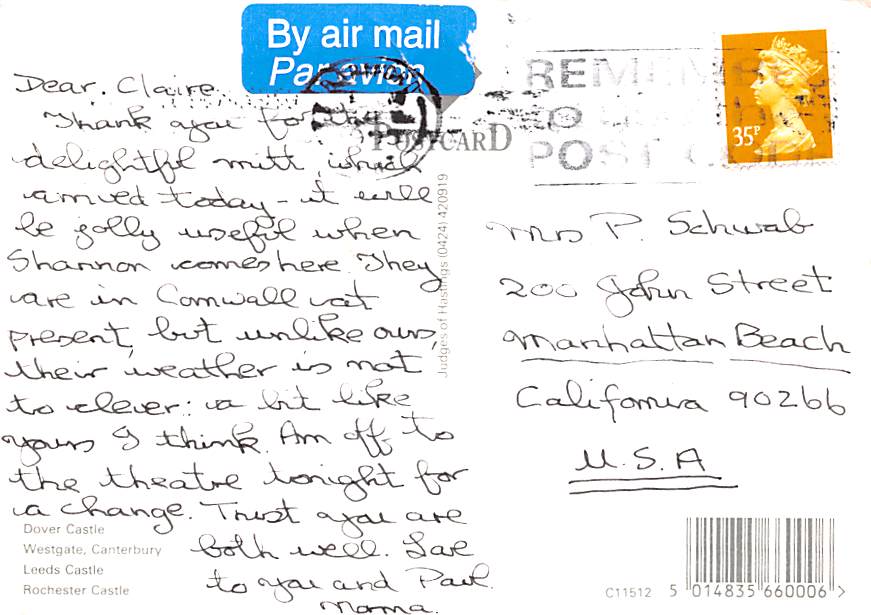 By air mail
Par avion
Dear. Claire
Thank you for the
delightful mitt, which
arrived today - it will
be jolly useful when
Shannon comes here. They
are in Cornwall at
present, but unlike ours,
their weather is not
to clever: a bit like
yours I think. Am off to
the theatre tonight for
a change. Trust you are
both well. Love
to you and Paul.
Norma.
Dover Castle
Westgate, Canterbury
Leeds Castle
Rochester Castle
POSTCARD
Judges of Hastings (0424) 420919
REMEMBER
TO
POST CODE
35P
Mrs P. Schwab
200 John Street
Manhattan Beach
California 90266
U.S.A
C11512 5 014835 660006 >